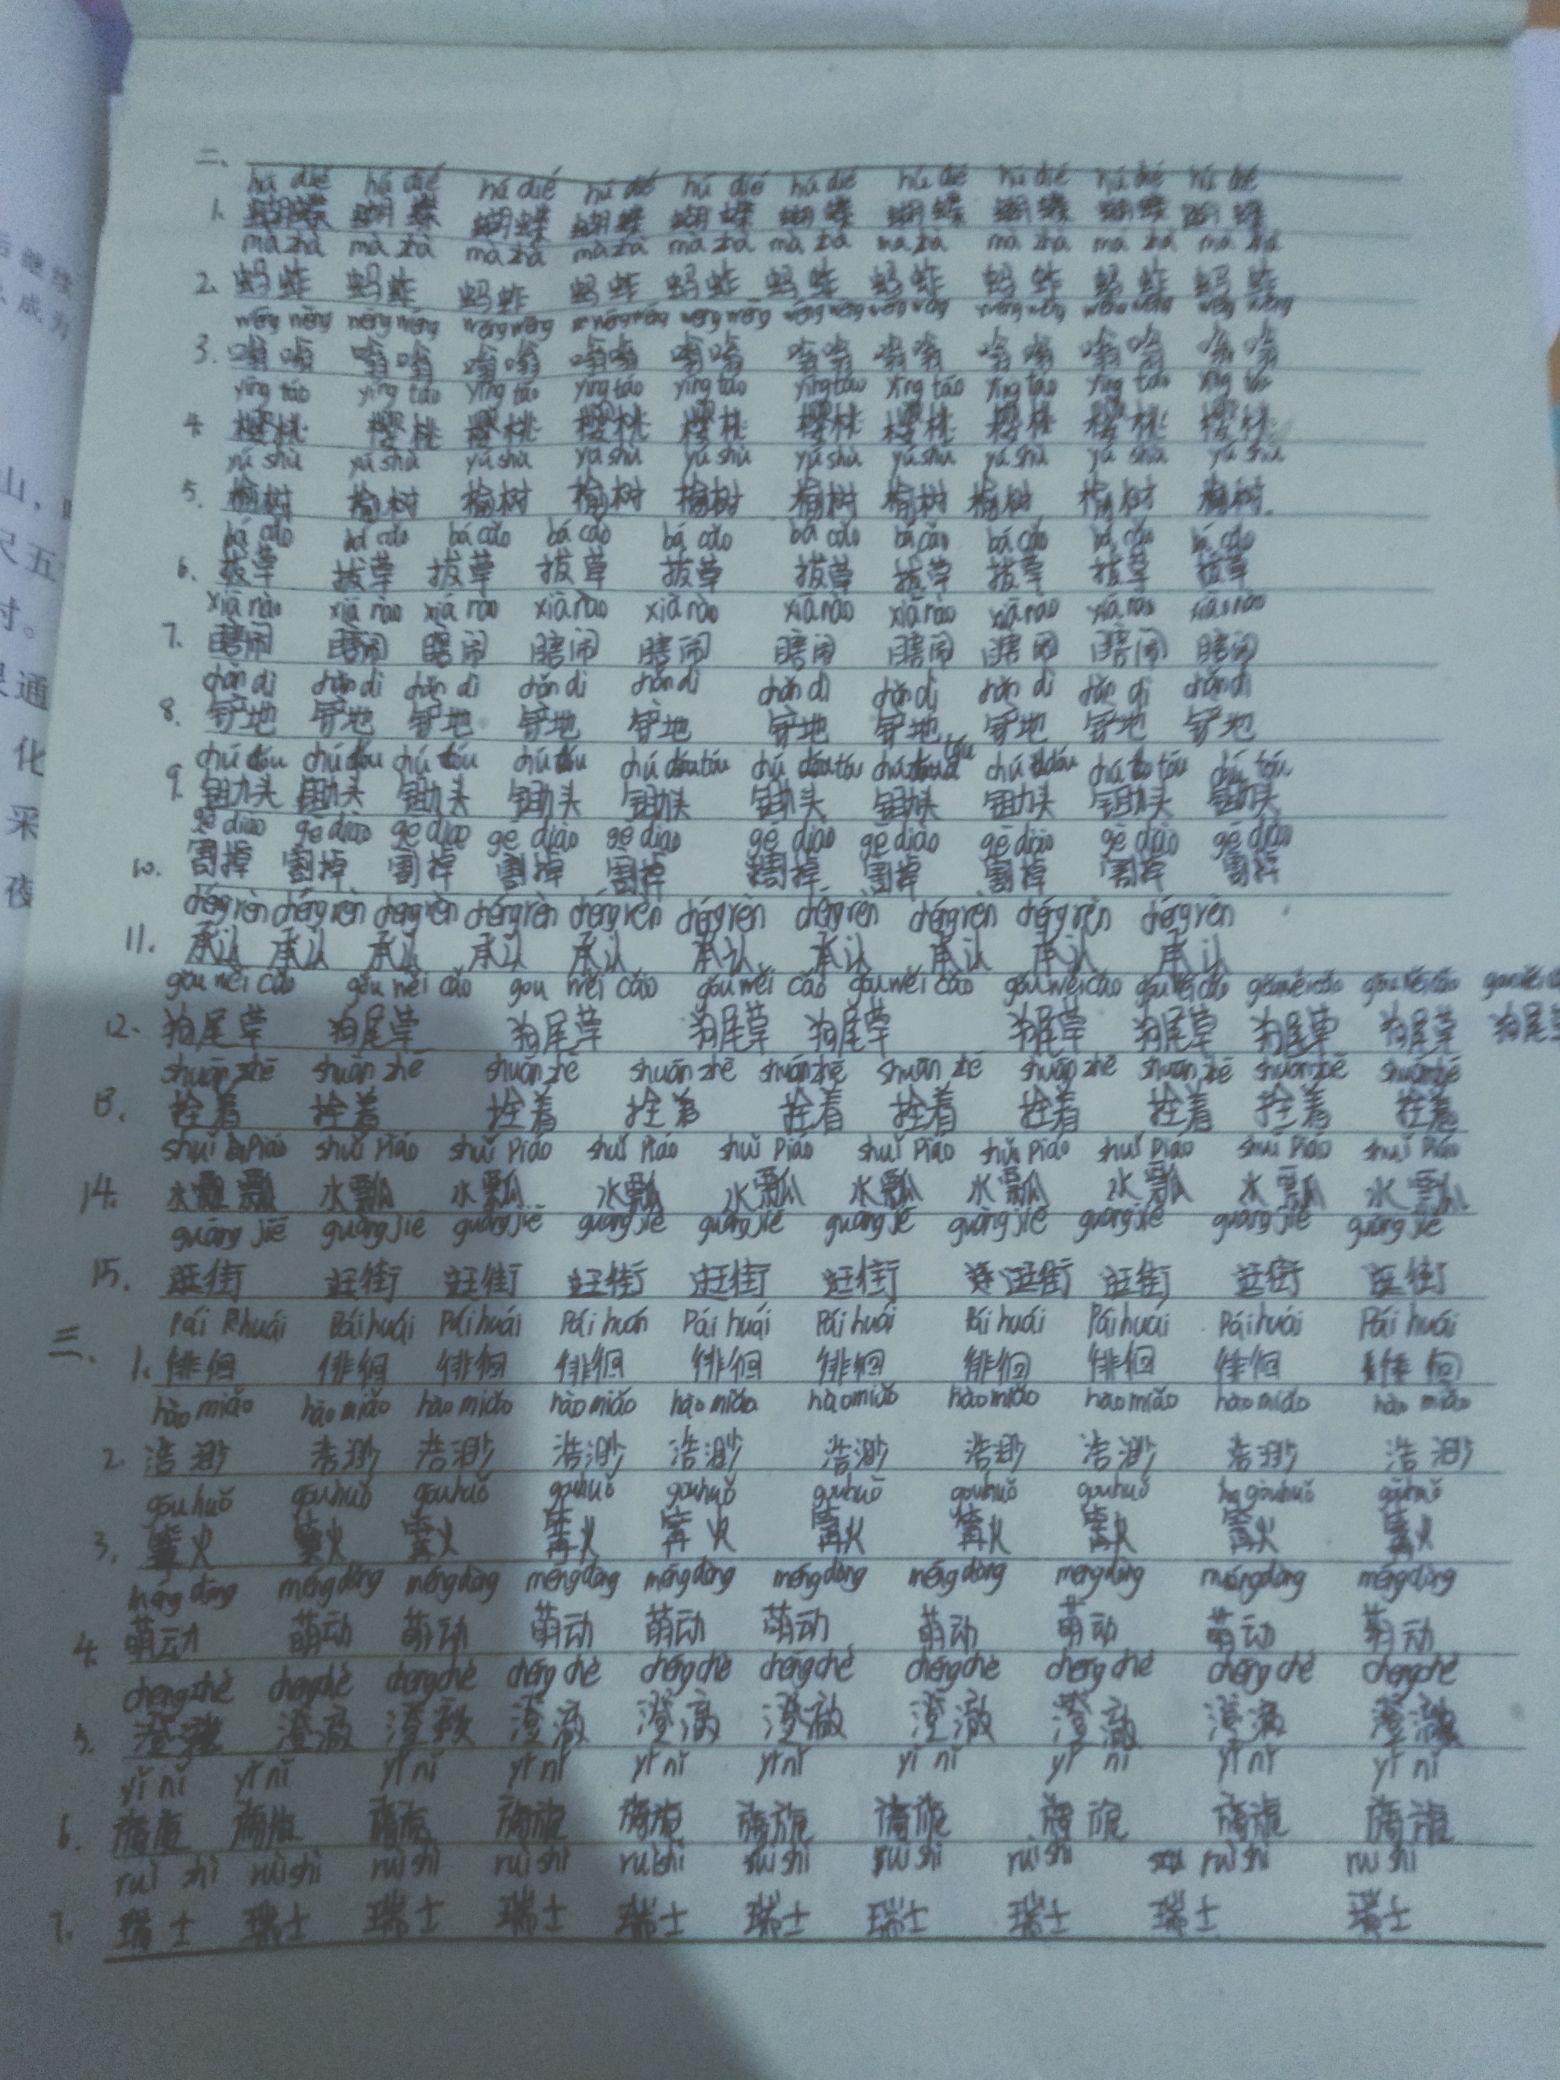 二、
hú dié hú dié hú dié hú dié hú dié hú dié hú dié hú dié hú dié hú dié
1. 蝴蝶 蝴蝶 蝴蝶 蝴蝶 蝴蝶 蝴蝶 蝴蝶 蝴蝶 蝴蝶 蝴蝶
mà zhà mà zhà mà zhà mà zhà
2. 蚂蚱 蚂蚱 蚂蚱 蚂蚱 蚂蚱 蚂蚱 蚂蚱 蚂蚱 蚂蚱 蚂蚱
3. 嗡嗡 嗡嗡 嗡嗡 嗡嗡 嗡嗡 嗡嗡 嗡嗡 嗡嗡 嗡嗡 嗡嗡
yīng táo yīng táo yīng táo yīng táo yīng táo yīng táo yīng táo yīng táo yīng táo yīng táo
4. 樱桃 樱桃 樱桃 樱桃 樱桃 樱桃 樱桃 樱桃 樱桃 樱桃
yú shù yú shù yú shù yú shù yú shù yú shù yú shù yú shù yú shù yú shù
5. 榆树 榆树 榆树 榆树 榆树 榆树 榆树 榆树 榆树 榆树
bá cǎo bá cǎo bá cǎo bá cǎo bá cǎo bá cǎo bá cǎo bá cǎo bá cǎo bá cǎo
6. 拔草 拔草 拔草 拔草 拔草 拔草 拔草 拔草 拔草 拔草
xiā nào xiā nào xiā nào xiā nào xiā nào xiā nào xiā nào xiā nào xiā nào xiā nào
7. 瞎闹 瞎闹 瞎闹 瞎闹 瞎闹 瞎闹 瞎闹 瞎闹 瞎闹 瞎闹
chǎn dì chǎn dì chǎn dì chǎn dì chǎn dì chǎn dì chǎn dì chǎn dì chǎn dì chǎn dì
8. 铲地 铲地 铲地 铲地 铲地 铲地 铲地 铲地 铲地 铲地
9. 锄头 锄头 锄头 锄头 锄头 锄头 锄头 锄头 锄头 锄头
gē diào gē diào gē diào gē diào gē diào gē diào gē diào gē diào gē diào gē diào
10. 割掉 割掉 割掉 割掉 割掉 割掉 割掉 割掉 割掉 割掉
chéng rèn chéng rèn chéng rèn chéng rèn chéng rèn chéng rèn chéng rèn chéng rèn chéng rèn chéng rèn
11. 承认 承认 承认 承认 承认 承认 承认 承认 承认 承认
gǒu wěi cǎo gǒu wěi cǎo gǒu wěi cǎo gǒu wěi cǎo gǒu wěi cǎo gǒu wěi cǎo gǒu wěi cǎo gǒu wěi cǎo gǒu wěi cǎo
12. 狗尾草 狗尾草 狗尾草 狗尾草 狗尾草 狗尾草 狗尾草 狗尾草 狗尾草 狗尾草
shuān zhē shuān zhē shuān zhē shuān zhē shuān zhē shuān zhē shuān zhē shuān zhē shuān zhē shuān zhē
13. 拴着 拴着 拴着 拴着 拴着 拴着 拴着 拴着 拴着 拴着
shuǐ piáo shuǐ piáo shuǐ piáo shuǐ piáo shuǐ piáo shuǐ piáo shuǐ piáo shuǐ piáo shuǐ piáo shuǐ piáo
14. 水瓢 水瓢 水瓢 水瓢 水瓢 水瓢 水瓢 水瓢 水瓢 水瓢
guàng jiē guàng jiē guàng jiē guàng jiē guàng jiē guàng jiē guàng jiē guàng jiē guàng jiē guàng jiē
15. 逛街 逛街 逛街 逛街 逛街 逛街 逛街 逛街 逛街 逛街
三、
Pái huái Pái huái Pái huái Pái huái Pái huái Pái huái Pái huái Pái huái Pái huái Pái huái
1. 徘徊 徘徊 徘徊 徘徊 徘徊 徘徊 徘徊 徘徊 徘徊 徘徊
hào miǎo hào miǎo hào miǎo hào miǎo hào miǎo hào miǎo hào miǎo hào miǎo hào miǎo hào miǎo
2. 浩渺 浩渺 浩渺 浩渺 浩渺 浩渺 浩渺 浩渺 浩渺 浩渺
gōu huǒ gōu huǒ gōu huǒ gōu huǒ gōu huǒ gōu huǒ gōu huǒ gōu huǒ gōu huǒ gōu huǒ
3. 篝火 篝火 篝火 篝火 篝火 篝火 篝火 篝火 篝火 篝火
méng dòng méng dòng méng dòng méng dòng méng dòng méng dòng méng dòng méng dòng méng dòng méng dòng
4. 萌动 萌动 萌动 萌动 萌动 萌动 萌动 萌动 萌动 萌动
chéng chè chéng chè chéng chè chéng chè chéng chè chéng chè chéng chè chéng chè chéng chè
5. 澄澈 澄澈 澄澈 澄澈 澄澈 澄澈 澄澈 澄澈 澄澈 澄澈
yǐ nǐ yǐ nǐ yǐ nǐ yǐ nǐ yǐ nǐ yǐ nǐ yǐ nǐ yǐ nǐ yǐ nǐ yǐ nǐ
6. 旖旎 旖旎 旖旎 旖旎 旖旎 旖旎 旖旎 旖旎 旖旎 旖旎
ruì shì ruì shì ruì shì ruì shì ruì shì ruì shì ruì shì ruì shì ruì shì ruì shì
7. 瑞士 瑞士 瑞士 瑞士 瑞士 瑞士 瑞士 瑞士 瑞士 瑞士